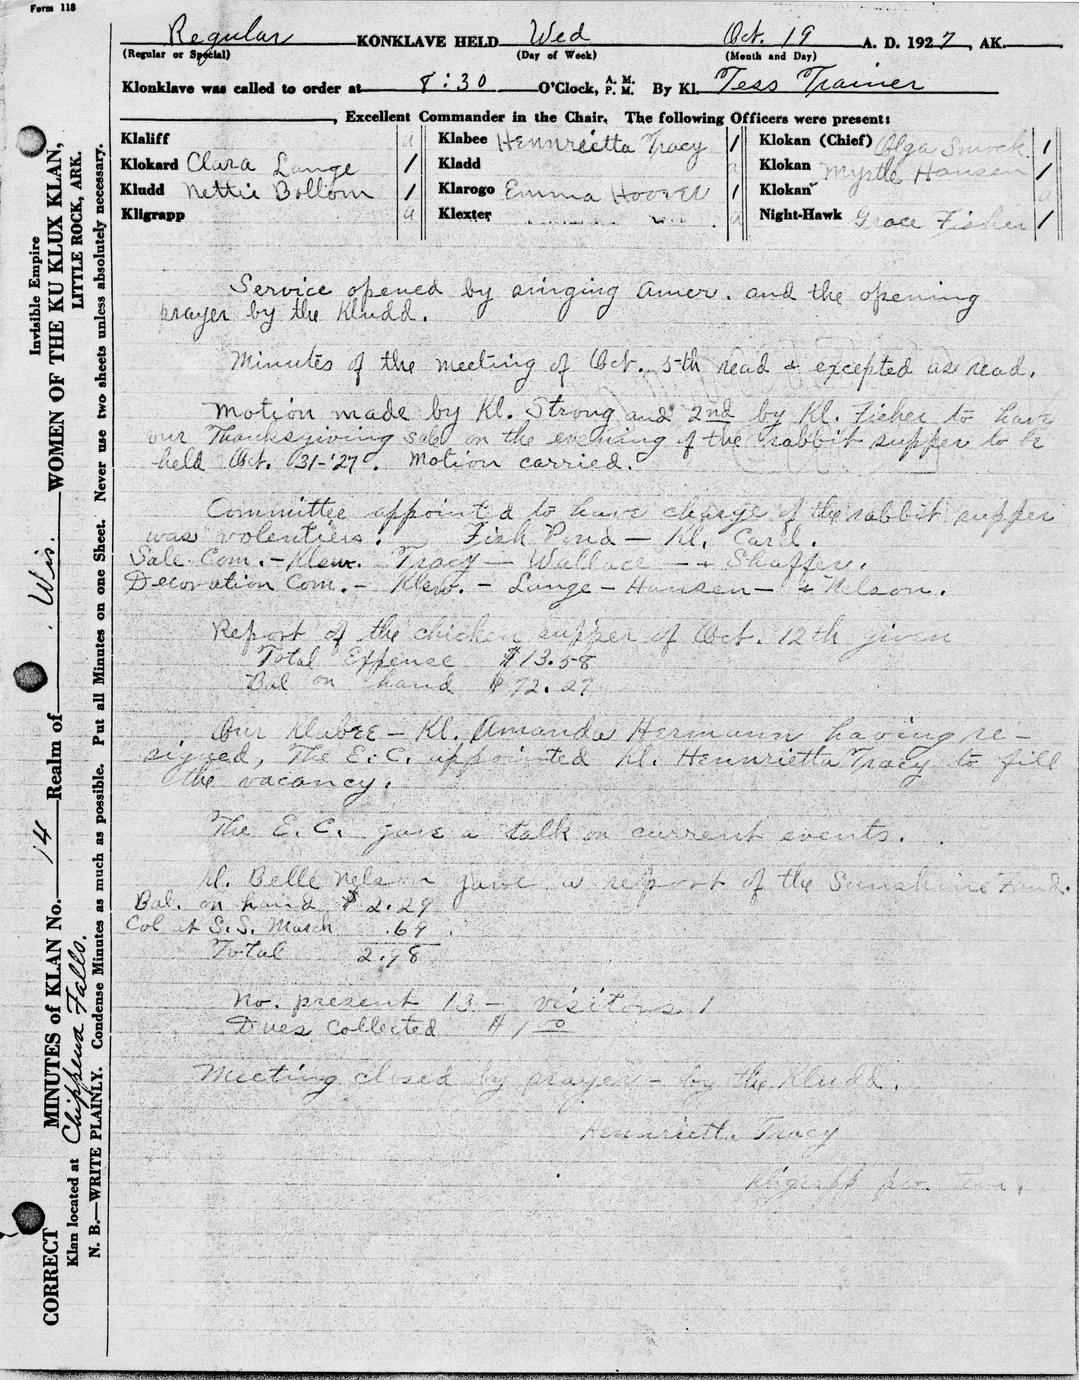 Form 118
Regular KONKLAVE HELD Wed Oct. 19 A. D. 1927, AK.
(Regular or Special) (Day of Week) (Month and Day)
Klonklave was called to order at 8:30 O'Clock, A. M. P. M. By Kl. Tess Trainer
, Excellent Commander in the Chair. The following Officers were present:
Klaliff a Klabee Hennrietta Tracy 1 Klokan (Chief) Olga Smock 1
Klokard Clara Lange 1 Kladd a Klokan Myrtle Hansen 1
Kludd Nettie Bollom 1 Klarogo Emma Hoover 1 Klokan a
Kligrapp a Klexter a Night-Hawk Grace Fisher 1
Service opened by singing Amer. and the opening
prayer by the Kludd.
Minutes of the meeting of Oct. 5th read & excepted as read.
Motion made by Kl. Strong and 2nd by Kl. Fisher to have
our Thanksgiving sale on the evening of the rabbit supper to be
held Oct. 31-'27. Motion carried.
Committee appointed to have charge of the rabbit supper
was volentiers. Fish Pond — Kl. Card.
Sale Com. - Klsw. Tracy — Wallace — + Shaffer.
Decoration Com. - Klsw. - Lange - Hansen - & Nelson.
Report of the chicken supper of Oct. 12th given
Total Expense $13.58
Bal on hand $72.27
Our Klabee - Kl. Amanda Hermann having re-
signed, The E.C. appointed Kl. Hennrietta Tracy to fill
the vacancy.
The E. C. gave a talk on current events.
Kl. Belle Nelson gave a report of the Sunshine Fund.
Bal. on hand $2.29
Col at S.S. March .69
Total 2.98
No. present 13 - visitors 1
Dues collected $1 00
Meeting closed by prayer - by the Kludd.
Hennrietta Tracy
Kligrapp pro tem.
CORRECT MINUTES of KLAN No. 14 Realm of Wis. WOMEN OF THE KU KLUX KLAN,
Invisible Empire
LITTLE ROCK, ARK.
Klan located at Chippewa Falls.
N. B.—WRITE PLAINLY. Condense Minutes as much as possible. Put all Minutes on one Sheet. Never use two sheets unless absolutely necessary.